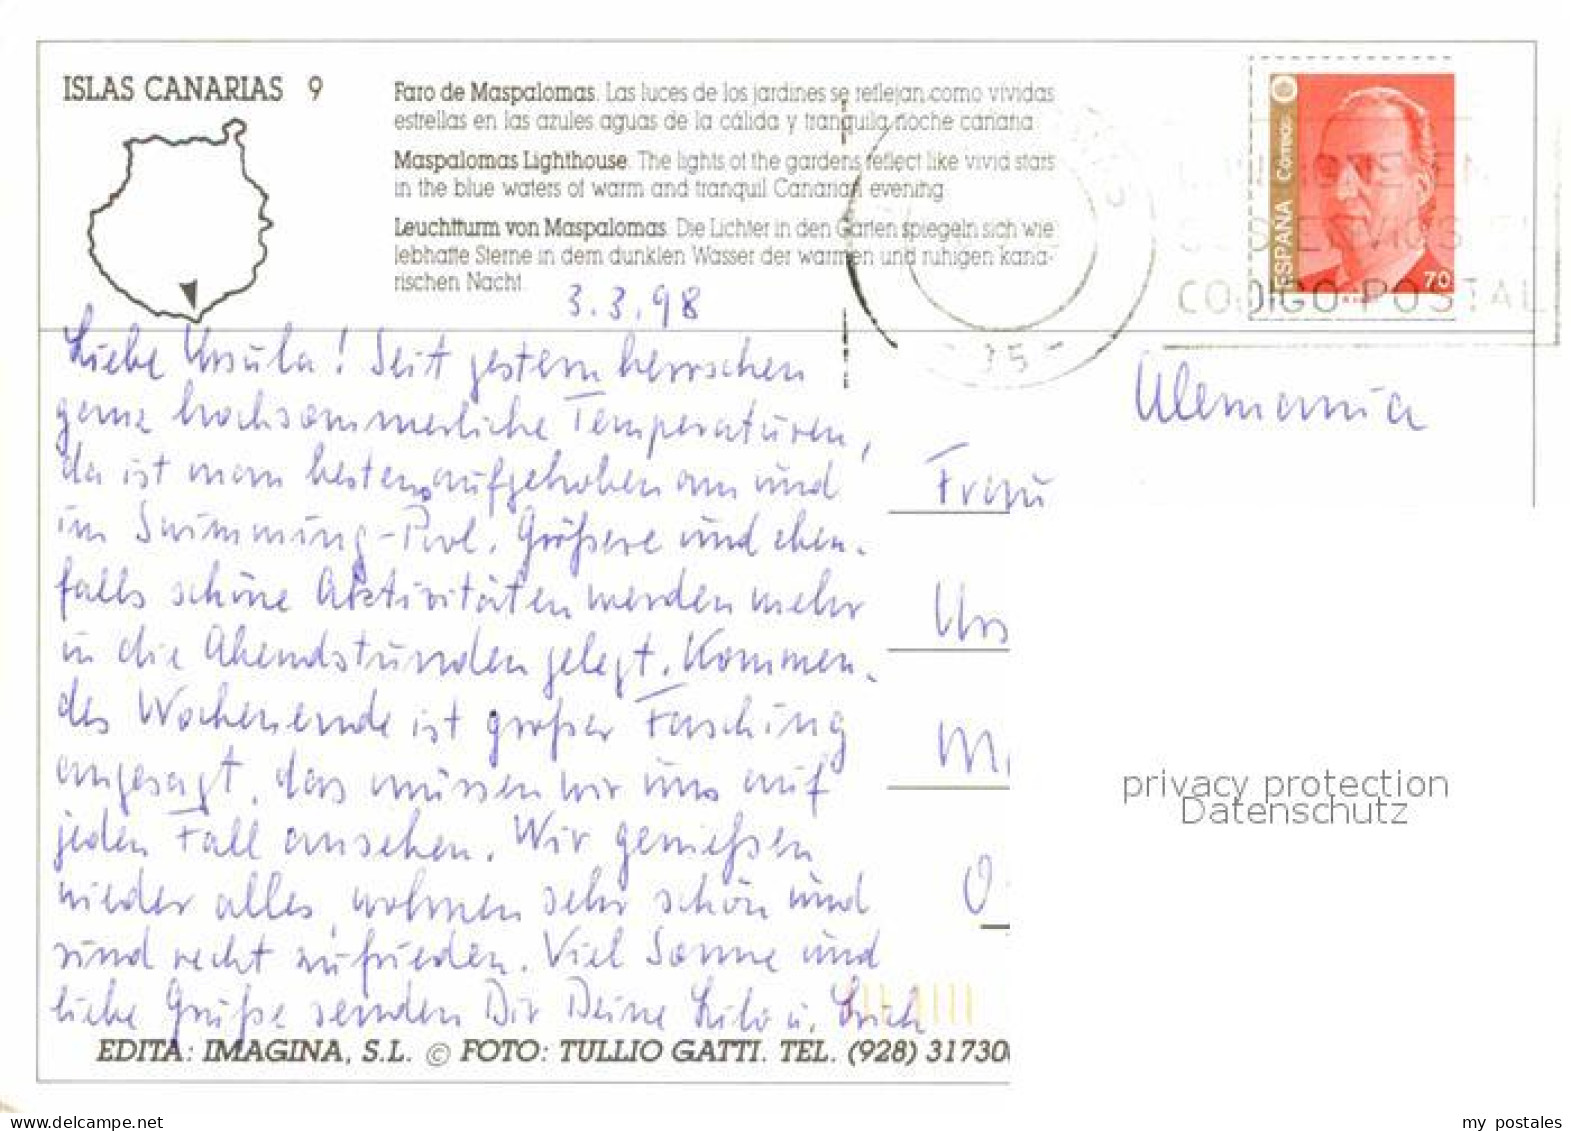 ISLAS CANARIAS 9
Faro de Maspalomas. Las luces de los jardines se reflejan como vividas
estrellas en las azules aguas de la cálida y tranquila noche canaria
Maspalomas Lighthouse. The lights of the gardens reflect like vivid stars
in the blue waters of warm and tranquil Canarian evening
Leuchtturm von Maspalomas. Die Lichter in den Garten spiegeln sich wie
lebhafte Sterne in dem dunklen Wasser der warmen und ruhigen kana-
rischen Nacht
ESPANA Correos
70
CODIGO POSTAL
35
3.3.98
Liebe Ursula! Seit gestern herrschen
ganz hochsommerliche Temperaturen,
da ist man bestens aufgehoben am und
im Swimming-Pool. Größere und eben-
falls schöne Aktivitäten werden mehr
in die Abendstunden gelegt. Kommen-
des Wochenende ist großer Fasching
angesagt, das müssen wir uns auf
jeden Fall ansehen. Wir genießen
wieder alles, wohnen sehr schön und
sind recht zufrieden. Viel Sonne und
liebe Grüße senden Dir Deine Lilo u. Erich
Alemania
Frau
Urs
M
O
privacy protection
Datenschutz
EDITA: IMAGINA, S.L. © FOTO: TULLIO GATTI. TEL. (928) 31730
my-witcom
my_postales